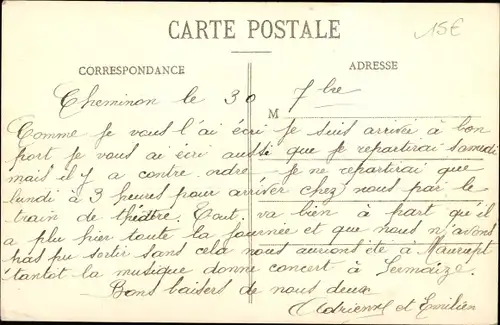 CARTE POSTALE
15€
CORRESPONDANCE
ADRESSE
Cheminon le 30 7bre
M
Comme je vous l'ai écri je suis arrivée à bon
port je vous ai écri aussi que je repartirai samedi
mais il y a contre ordre je ne repartirai que
lundi à 3 heures pour arriver chez nous par le
train de théâtre. Tout va bien à part qu'il
a plu hier toute la journée et que nous n'avons
pas pu sortir sans cela nous aurions été à Maurupt
tantot la musique donne concert à Sermaize.
Bons baisers de nous deux
Adrienne et Emilien